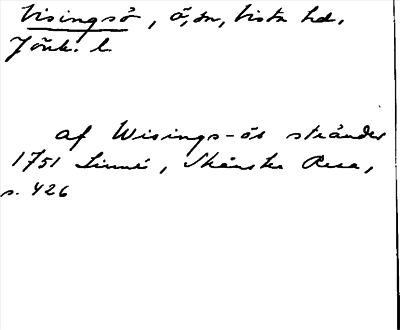 Visingsö, ö, sn, Vista hd.
Jönk. l.
af Wisings-ös stränder
1751 Linné, Skånska Resa,
s. 426